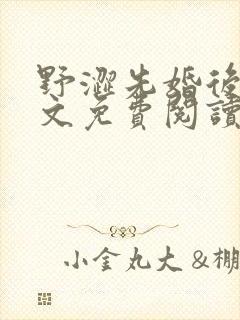 野澀先婚後
文免費閱讀
小金丸大 &棚